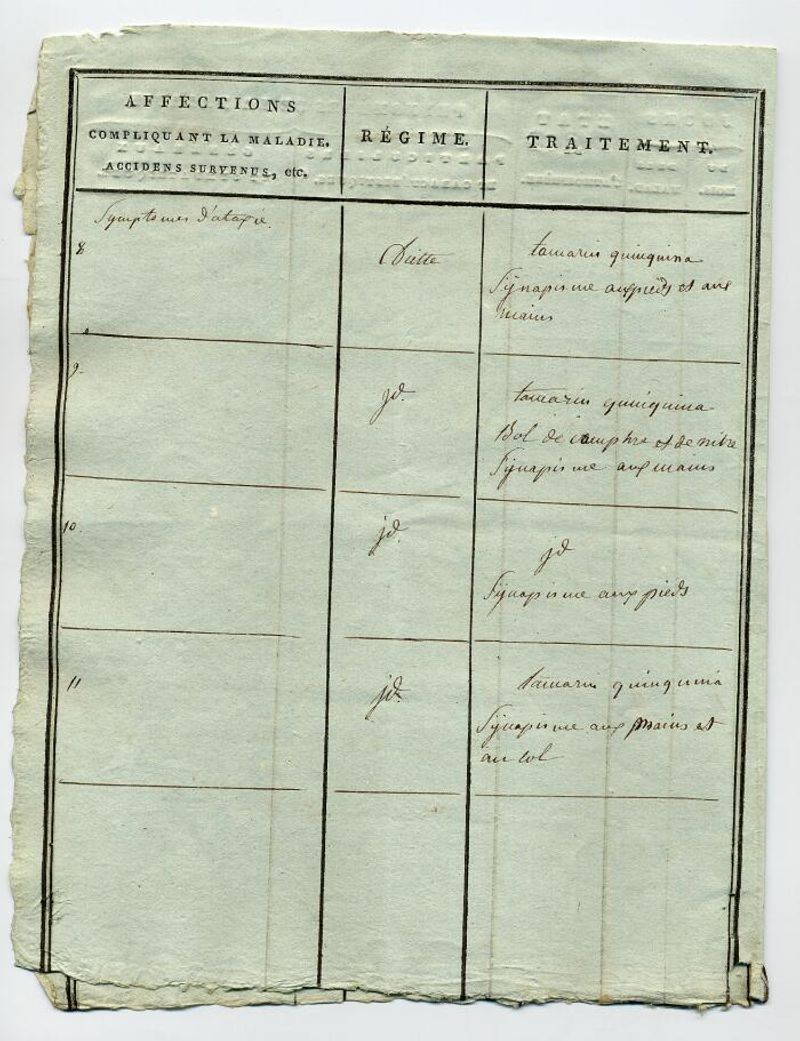 AFFECTIONS
COMPLIQUANT LA MALADIE.
ACCIDENS SURVENUS, etc.
RÉGIME.
TRAITEMENT.
Symptomes d'ataxie.
8
Diette
tamarin quinquina
Synapisme aux pieds et aux
mains
9.
jd.
tamarin quinquina
Bol de camphre et de nitre
Synapisme aux mains
10.
jd.
jd
Synapisme aux pieds
11
jd.
tamarin quinquina
Synapisme aux mains et
au col